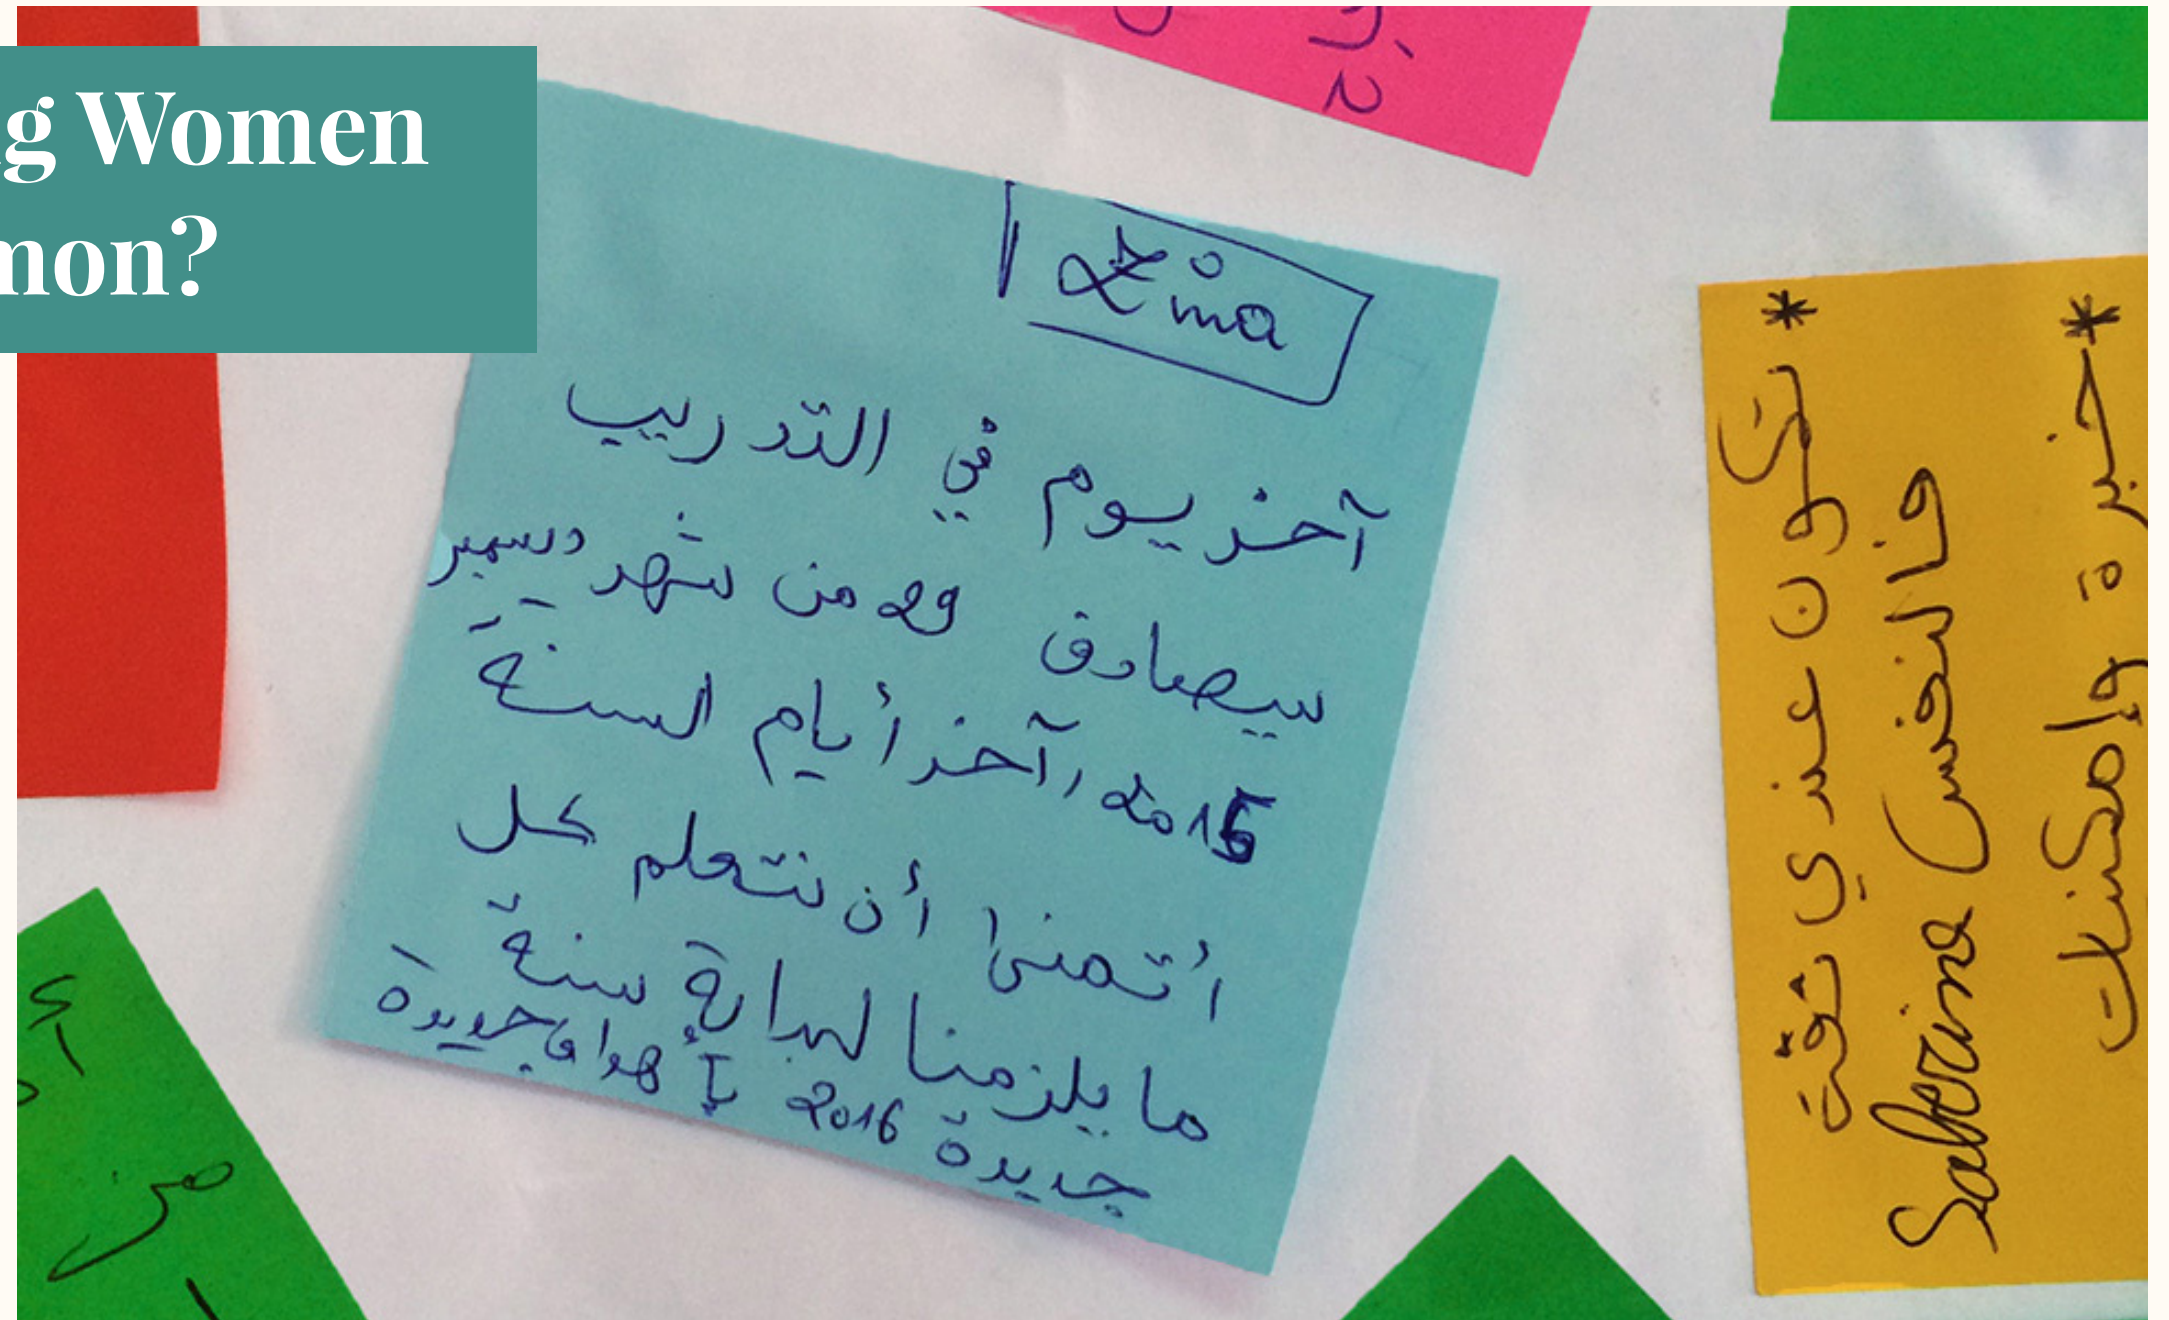 g Women
mon?
Zina
آخر يوم في التدريب
سيصادف 29 من شهر ديسمبر
2015، آخر أيام السنة
أتمنى أن نتعلم كل
ما يلزمنا لبداية سنة
جديدة 2016 بأهداف جديدة
* تكون عندي ثقة
فالنفس
Saberina
* خبرة وإمكنات
من